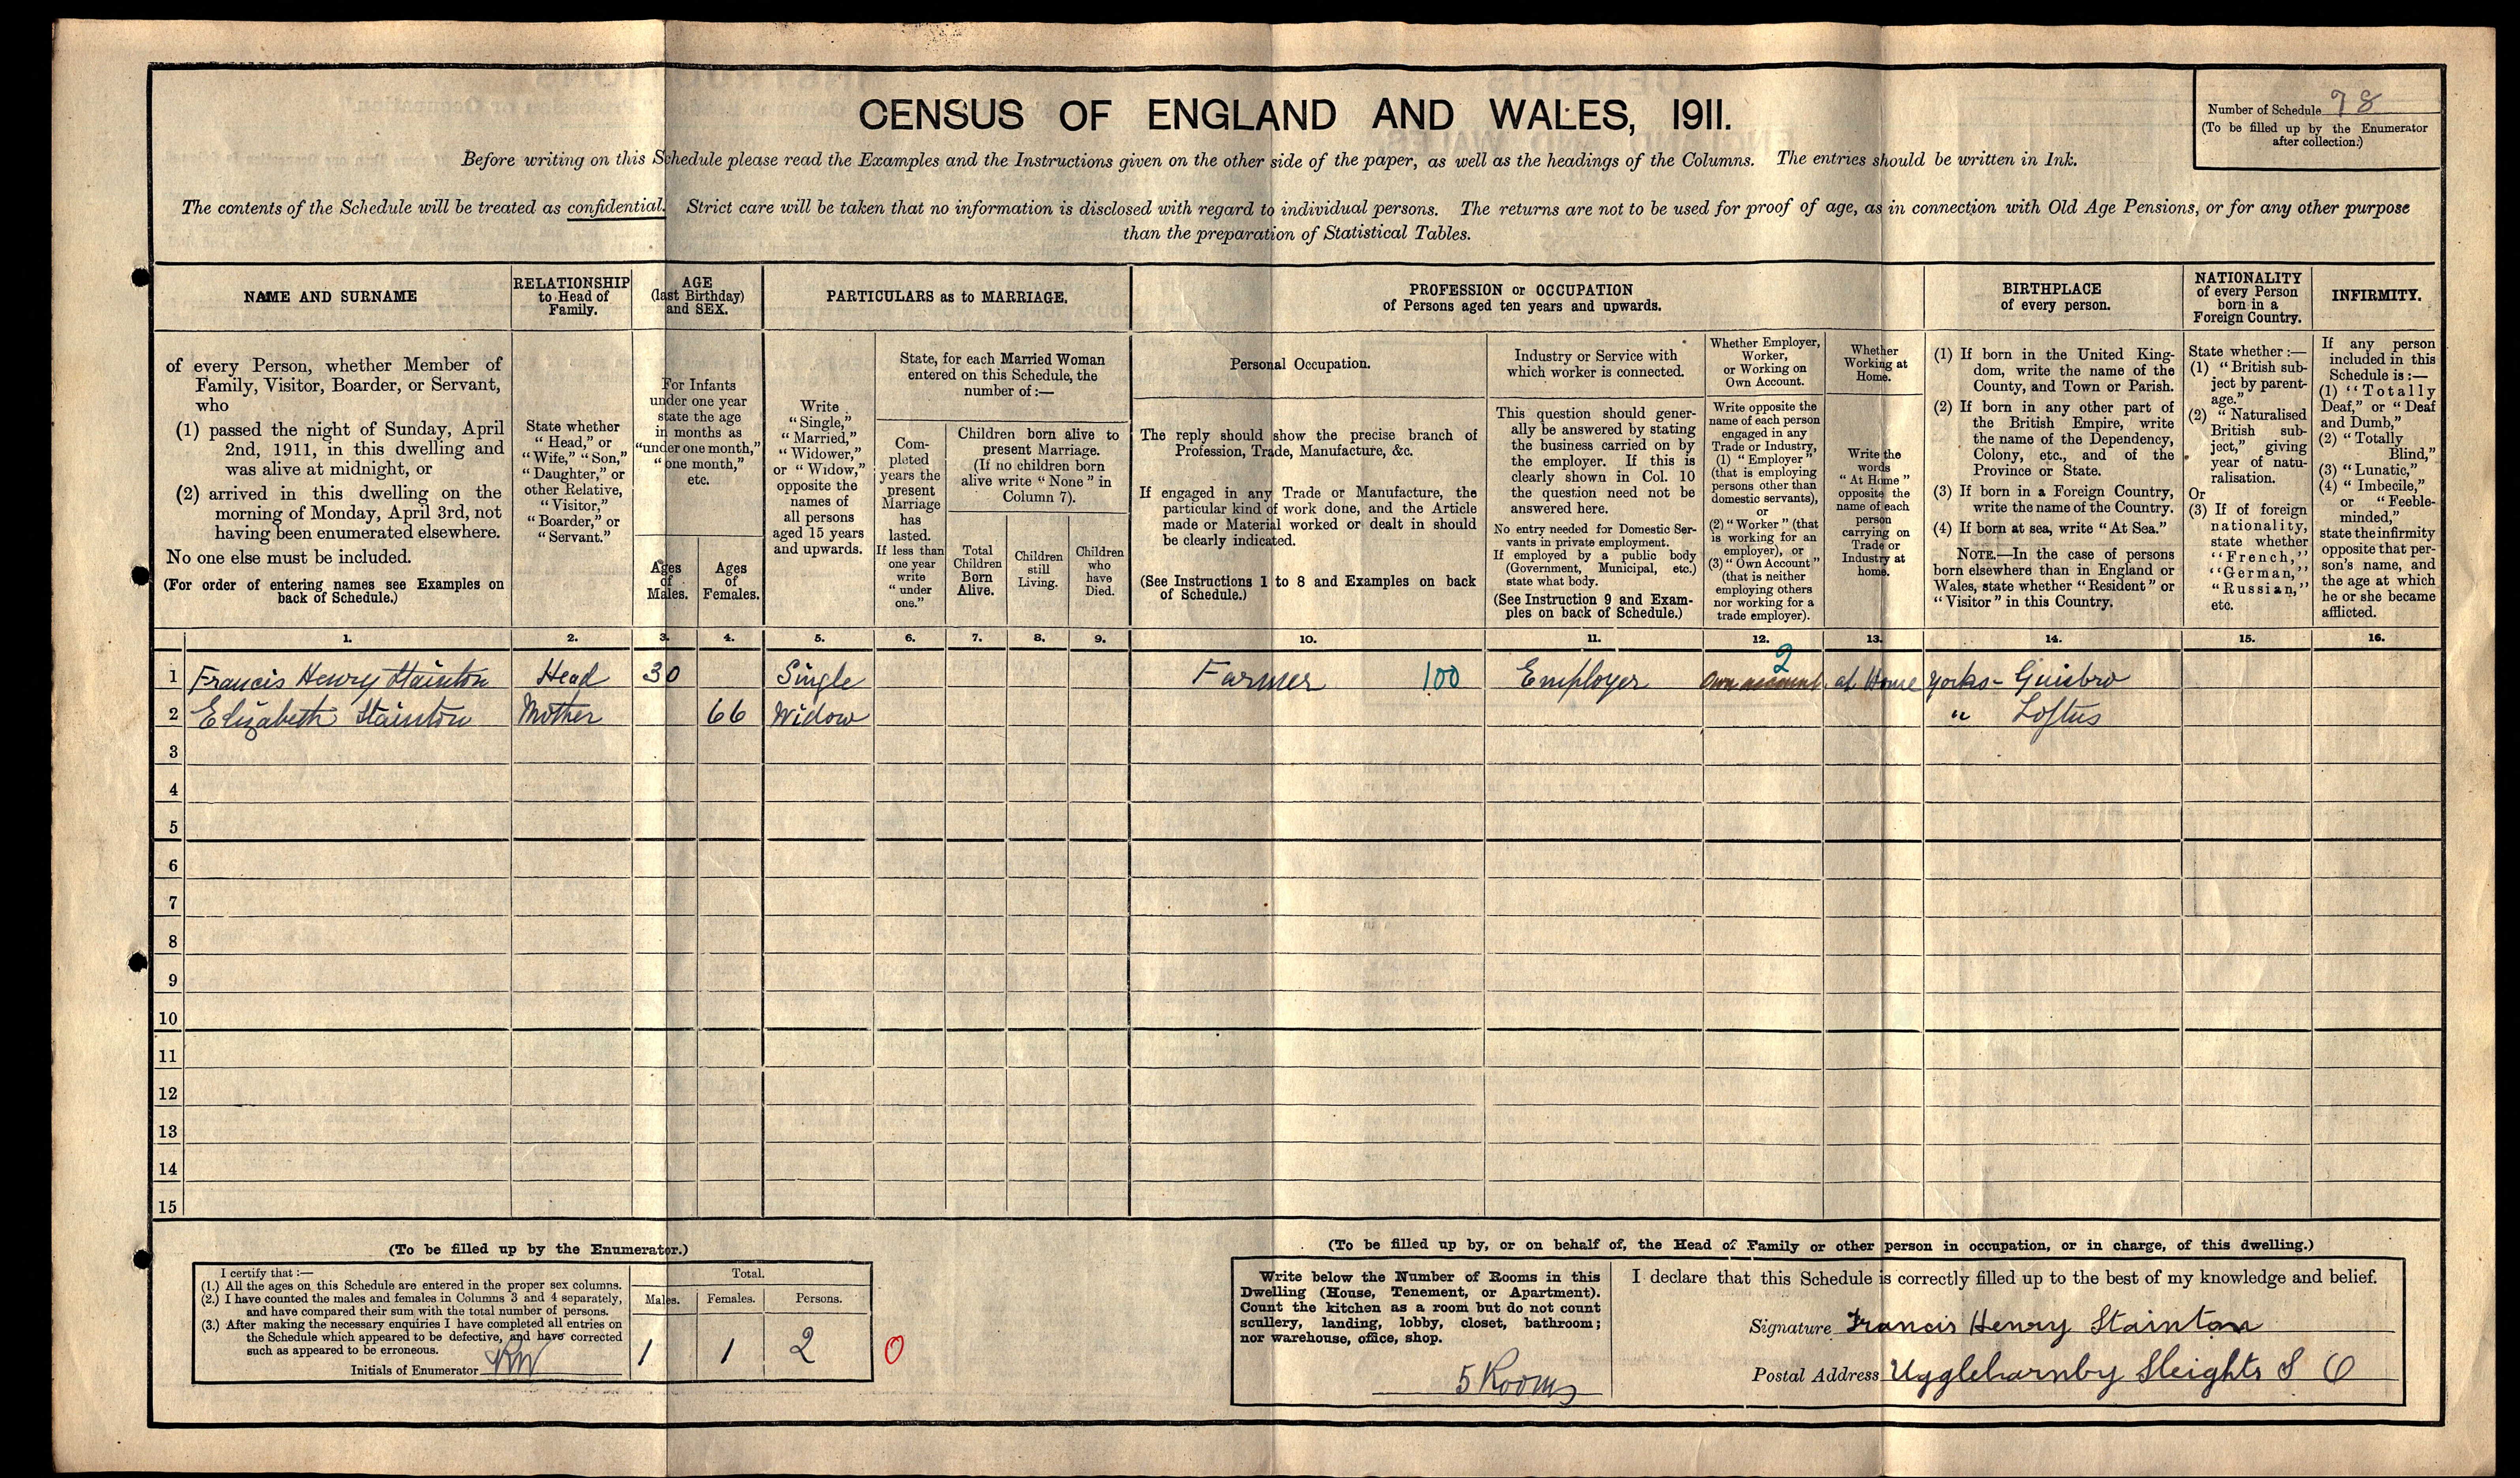 CENSUS OF ENGLAND AND WALES, 1911.
Number of Schedule 98
(To be filled up by the Enumerator
after collection.)
Before writing on this Schedule please read the Examples and the Instructions given on the other side of the paper, as well as the headings of the Columns. The entries should be written in Ink.
The contents of the Schedule will be treated as confidential. Strict care will be taken that no information is disclosed with regard to individual persons. The returns are not to be used for proof of age, as in connection with Old Age Pensions, or for any other purpose
than the preparation of Statistical Tables.
NAME AND SURNAME
of every Person, whether Member of
Family, Visitor, Boarder, or Servant,
who
(1) passed the night of Sunday, April
2nd, 1911, in this dwelling and
was alive at midnight, or
(2) arrived in this dwelling on the
morning of Monday, April 3rd, not
having been enumerated elsewhere.
No one else must be included.
(For order of entering names see Examples on
back of Schedule.)
RELATIONSHIP
to Head of
Family.
State whether
"Head," or
"Wife," "Son,"
"Daughter," or
other Relative,
"Visitor,"
"Boarder," or
"Servant."
AGE
(last Birthday)
and SEX.
For Infants
under one year
state the age
in months as
"under one month,"
"one month,"
etc.
Ages
of
Males.
Ages
of
Females.
PARTICULARS as to MARRIAGE.
Write
"Single,"
"Married,"
"Widower,"
or "Widow,"
opposite the
names of
all persons
aged 15 years
and upwards.
State, for each Married Woman
entered on this Schedule, the
number of :—
Com-
pleted
years the
present
Marriage
has
lasted.
If less than
one year
write
"under
one."
Children born alive to
present Marriage.
(If no children born
alive write "None" in
Column 7).
Total
Children
Born
Alive.
Children
still
Living.
Children
who
have
Died.
PROFESSION or OCCUPATION
of Persons aged ten years and upwards.
Personal Occupation.
The reply should show the precise branch of
Profession, Trade, Manufacture, &c.
If engaged in any Trade or Manufacture, the
particular kind of work done, and the Article
made or Material worked or dealt in should
be clearly indicated.
(See Instructions 1 to 8 and Examples on back
of Schedule.)
Industry or Service with
which worker is connected.
This question should gener-
ally be answered by stating
the business carried on by
the employer. If this is
clearly shown in Col. 10
the question need not be
answered here.
No entry needed for Domestic Ser-
vants in private employment.
If employed by a public body
(Government, Municipal, etc.)
state what body.
(See Instruction 9 and Exam-
ples on back of Schedule.)
Whether Employer,
Worker,
or Working on
Own Account.
Write opposite the
name of each person
engaged in any
Trade or Industry,
(1) "Employer"
(that is employing
persons other than
domestic servants),
or
(2) "Worker" (that
is working for an
employer), or
(3) "Own Account"
(that is neither
employing others
nor working for a
trade employer).
Whether
Working at
Home.
Write the
words
"At Home"
opposite the
name of each
person
carrying on
Trade or
Industry at
home.
BIRTHPLACE
of every person.
(1) If born in the United King-
dom, write the name of the
County, and Town or Parish.
(2) If born in any other part of
the British Empire, write
the name of the Dependency,
Colony, etc., and of the
Province or State.
(3) If born in a Foreign Country,
write the name of the Country.
(4) If born at sea, write "At Sea."
NOTE.—In the case of persons
born elsewhere than in England or
Wales, state whether "Resident" or
"Visitor" in this Country.
NATIONALITY
of every Person
born in a
Foreign Country.
State whether :—
(1) "British sub-
ject by parent-
age."
(2) "Naturalised
British sub-
ject," giving
year of natu-
ralisation.
Or
(3) If of foreign
nationality,
state whether
"French,"
"German,"
"Russian,"
etc.
INFIRMITY.
If any person
included in this
Schedule is :—
(1) "Totally
Deaf," or "Deaf
and Dumb,"
(2) "Totally
Blind,"
(3) "Lunatic,"
(4) "Imbecile,"
or "Feeble-
minded,"
state the infirmity
opposite that per-
son's name, and
the age at which
he or she became
afflicted.
1. 2. 3. 4. 5. 6. 7. 8. 9. 10. 11. 12. 13. 14. 15. 16.
2
1 Francis Henry Stainton Head 30 Single Farmer 100 Employer Own account at Home Yorks - Guisbro
2 Elizabeth Stainton Mother 66 Widow " Loftus
3
4
5
6
7
8
9
10
11
12
13
14
15
(To be filled up by the Enumerator.)
I certify that :—
(1.) All the ages on this Schedule are entered in the proper sex columns.
(2.) I have counted the males and females in Columns 3 and 4 separately,
and have compared their sum with the total number of persons.
(3.) After making the necessary enquiries I have completed all entries on
the Schedule which appeared to be defective, and have corrected
such as appeared to be erroneous.
Initials of Enumerator
Total.
Males. Females. Persons.
1 1 2 0
(To be filled up by, or on behalf of, the Head of Family or other person in occupation, or in charge, of this dwelling.)
Write below the Number of Rooms in this
Dwelling (House, Tenement, or Apartment).
Count the kitchen as a room but do not count
scullery, landing, lobby, closet, bathroom;
nor warehouse, office, shop.
5 Rooms
I declare that this Schedule is correctly filled up to the best of my knowledge and belief.
Signature Francis Henry Stainton
Postal Address Ugglebarnby Sleights S O